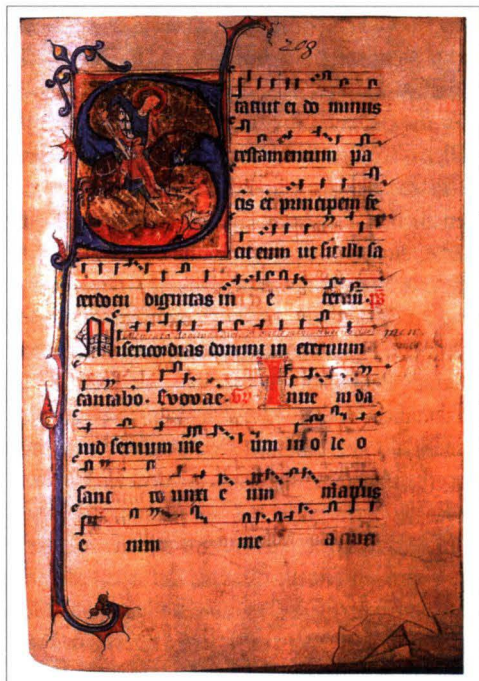 208
S tatuit ei do minus
testamentum pa
cis et principem fe
cit eum ut sit illi sa
cerdocii dignitas in e ternū. ps
Misericordias domini in eternum
cantabo. Evovae. gr Inue ni da
uid seruum me um in o le o
sanc to unxi e um manus
e nim me a auxi